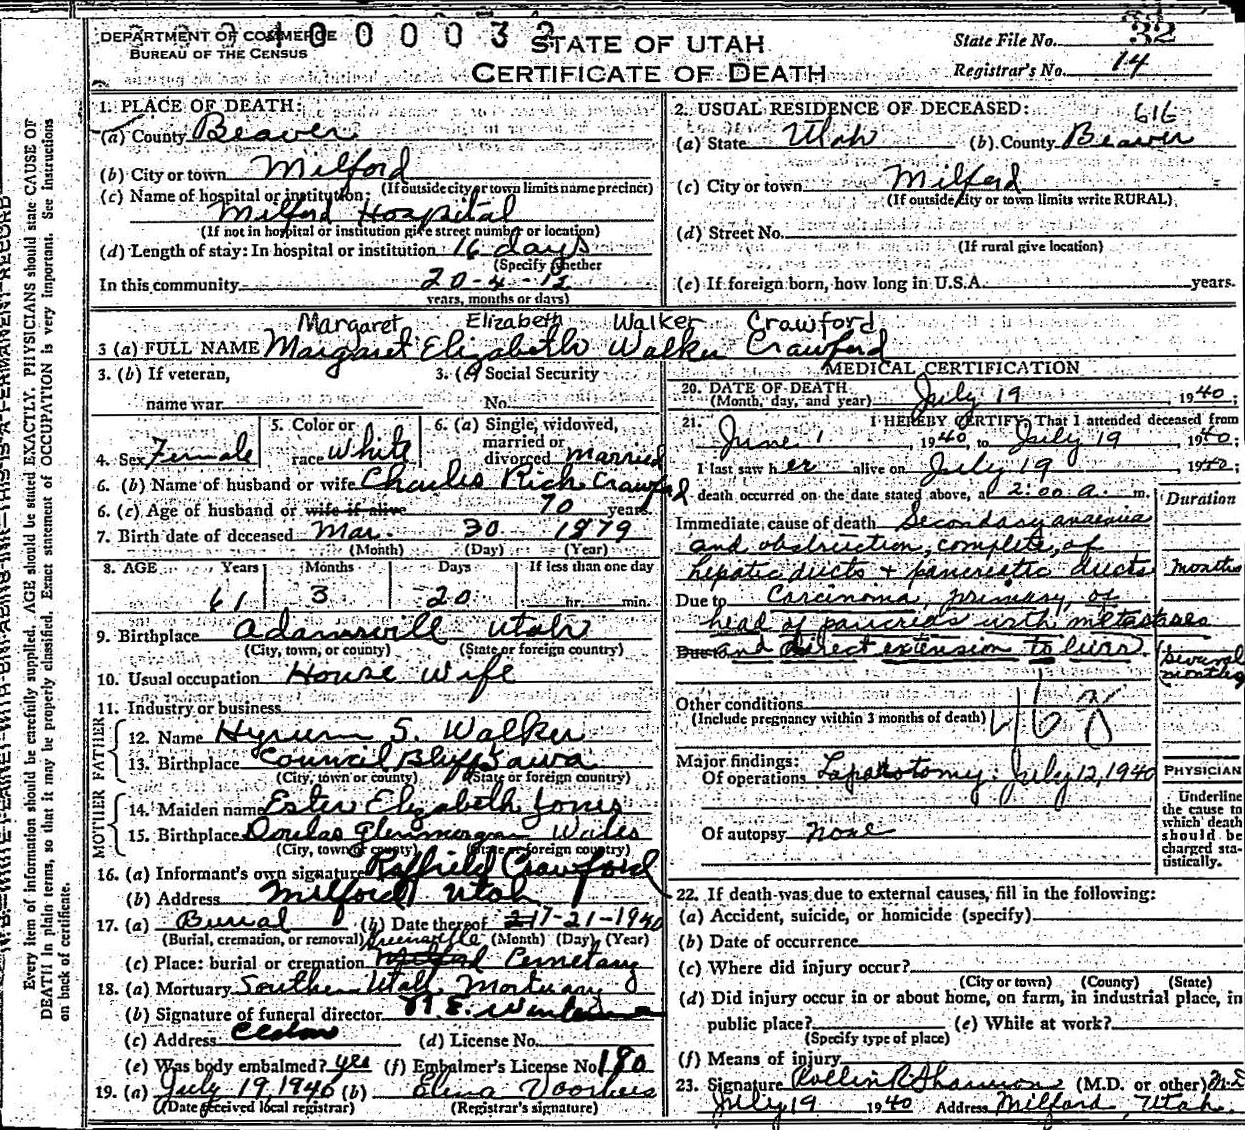 DEPARTMENT OF COMMERCE
BUREAU OF THE CENSUS
STATE OF UTAH
CERTIFICATE OF DEATH
State File No. 32
Registrar's No. 14
Every item of information should be carefully supplied. AGE should be stated EXACTLY. PHYSICIANS should state CAUSE OF
DEATH in plain terms, so that it may be properly classified. Exact statement of OCCUPATION is very important. See instructions
on back of certificate.
1. PLACE OF DEATH:
(a) County Beaver
(b) City or town Milford
(If outside city or town limits name precinct)
(c) Name of hospital or institution:
Milford Hospital
(If not in hospital or institution give street number or location)
(d) Length of stay: In hospital or institution 16 days
(Specify whether
In this community 20-4-12
years, months or days)
2. USUAL RESIDENCE OF DECEASED:
616
(a) State Utah (b) County Beaver
(c) City or town Milford
(If outside city or town limits write RURAL)
(d) Street No.
(If rural give location)
(e) If foreign born, how long in U.S.A. years.
Margaret Elizabeth Walker Crawford
3 (a) FULL NAME Margaret Elizabeth Walker Crawford
3. (b) If veteran, 3. (c) Social Security
name war No.
4. Sex Female 5. Color or race White 6. (a) Single, widowed, married or divorced married
6. (b) Name of husband or wife Charles Rich Crawford
6. (c) Age of husband or wife if alive 70 years
7. Birth date of deceased Mar. 30 1879
(Month) (Day) (Year)
8. AGE Years Months Days If less than one day
61 3 20 hr. min.
9. Birthplace Adamsvill Utah
(City, town, or county) (State or foreign country)
10. Usual occupation House Wife
11. Industry or business
FATHER
12. Name Hyrum S. Walker
13. Birthplace Council Bluff Iawa
(City, town or county) (State or foreign country)
MOTHER
14. Maiden name Ester Elizabeth Jones
15. Birthplace Doulas Glenmorgan Wales
(City, town or county) (State or foreign country)
16. (a) Informant's own signature Raffield Crawford
(b) Address Milford Utah
17. (a) Burial (b) Date thereof 7-21-1940
(Burial, cremation, or removal) (Month) (Day) (Year)
Greenville
(c) Place: burial or cremation Milford Cemetary
18. (a) Mortuary Southern Utah Mortuary
(b) Signature of funeral director
(c) Address Cedar (d) License No.
(e) Was body embalmed? yes (f) Embalmer's License No. 180
19. (a) July 19, 1940 (b) Elina Voorhees
(Date received local registrar) (Registrar's signature)
MEDICAL CERTIFICATION
20. DATE OF DEATH July 19, 1940;
(Month, day, and year)
21. I HEREBY CERTIFY, That I attended deceased from
June 1, 1940, to July 19, 1940;
I last saw her alive on July 19, 1940;
death occurred on the date stated above, at 2:00 a. m.
Duration
Immediate cause of death Secondary anaemia
and obstruction, complete, of
hepatic ducts + pancreatic ducts months
Due to Carcinoma, primary, of
head of pancreas with metastases
Due to and direct extension to liver. several months
Other conditions
(Include pregnancy within 3 months of death)
46 8
Major findings:
Of operations Laparotomy: July 12, 1940
Of autopsy none
PHYSICIAN
Underline
the cause to
which death
should be
charged sta-
tistically.
22. If death was due to external causes, fill in the following:
(a) Accident, suicide, or homicide (specify)
(b) Date of occurrence
(c) Where did injury occur?
(City or town) (County) (State)
(d) Did injury occur in or about home, on farm, in industrial place, in
public place? (e) While at work?
(Specify type of place)
(f) Means of injury
23. Signature Rollin R Shannon (M.D. or other) M.D
July 19 1940 Address Milford, Utah.